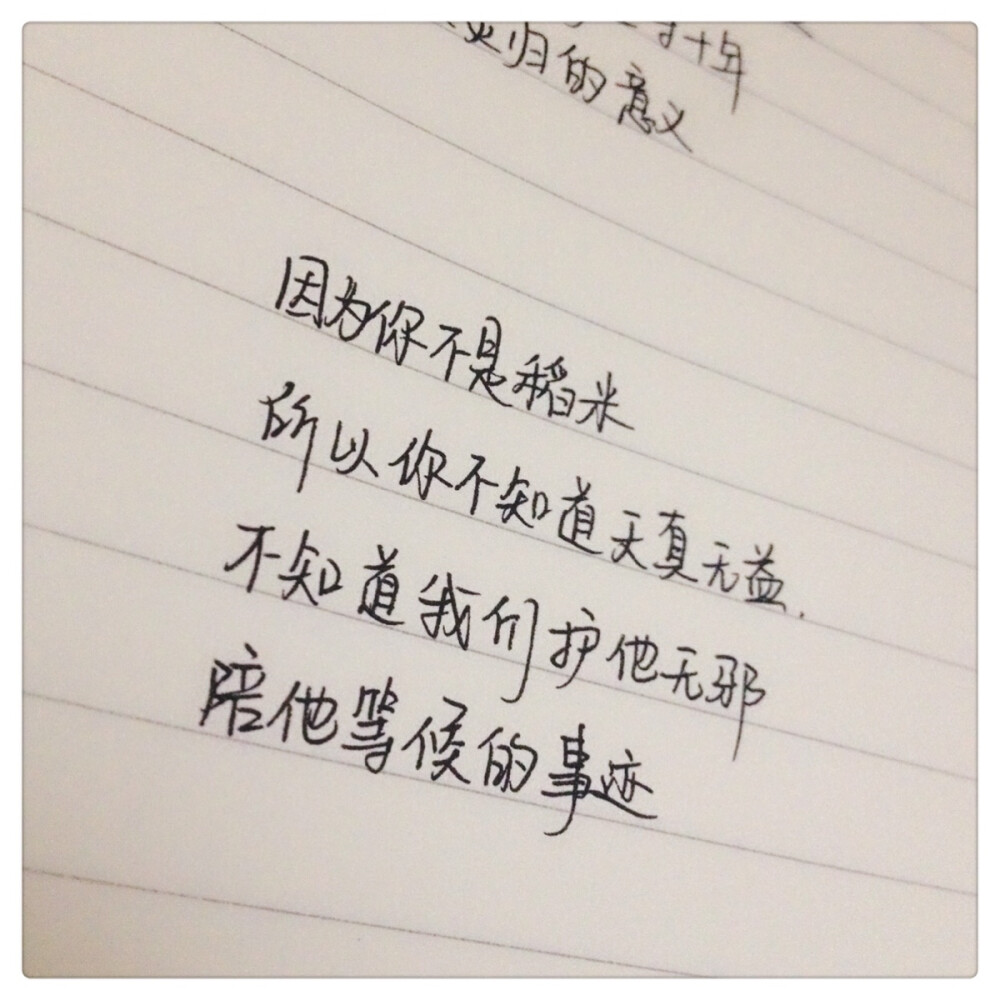 十年
归的意义
因为你不是稻米
所以你不知道天真无益.
不知道我们护他无邪
陪他等候的事迹